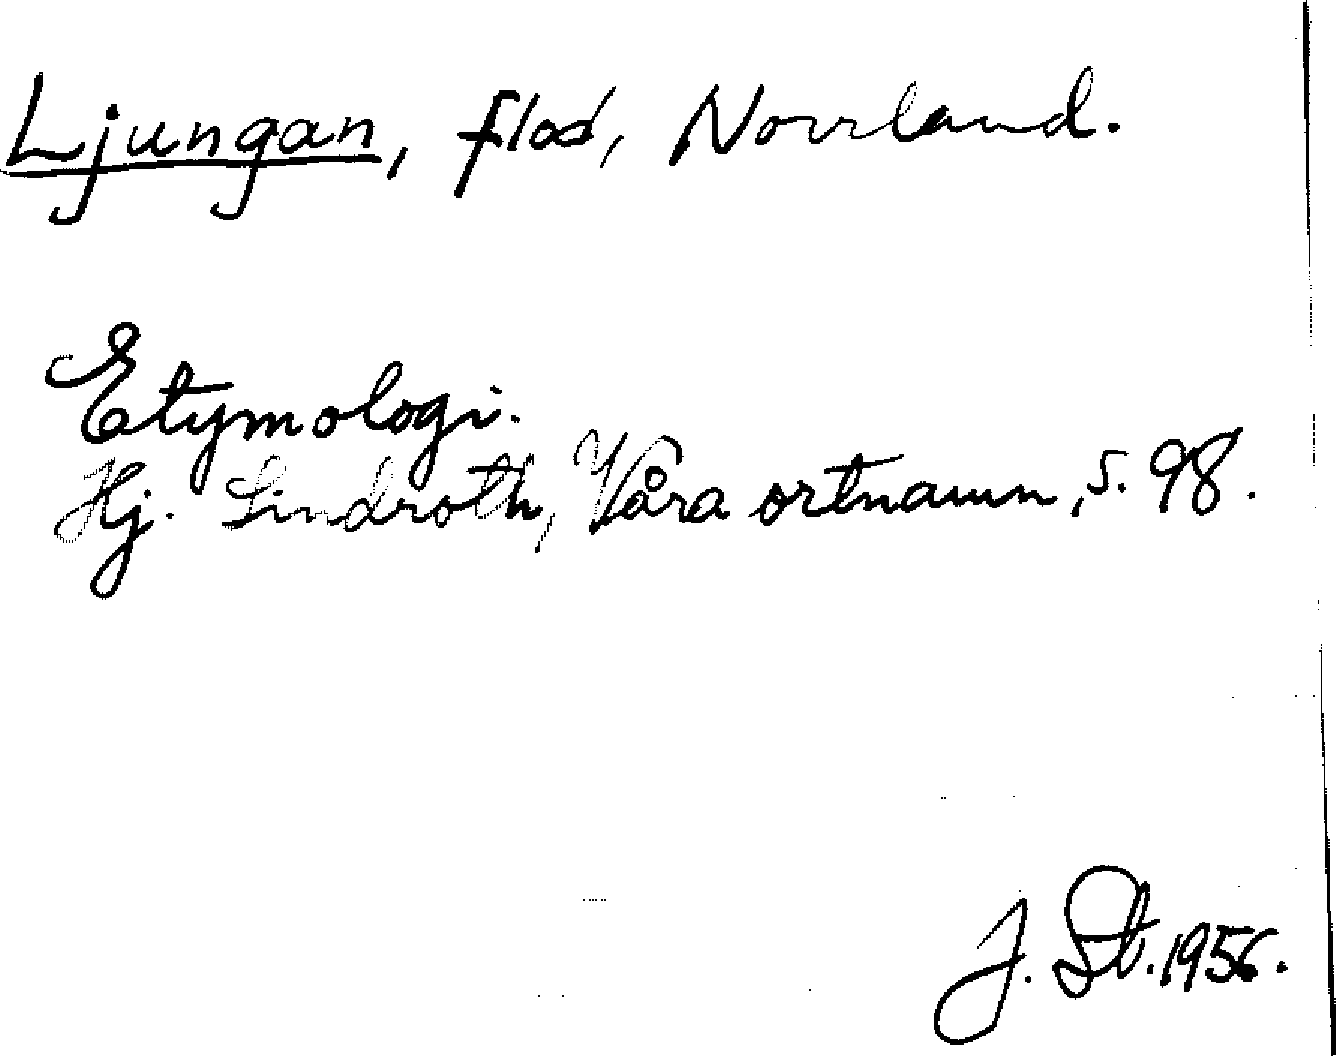 Ljungan, flod, Norrland.
Etymologi.
Hj. Lindroth, Våra ortnamn, s. 98.
J. St. 1956.